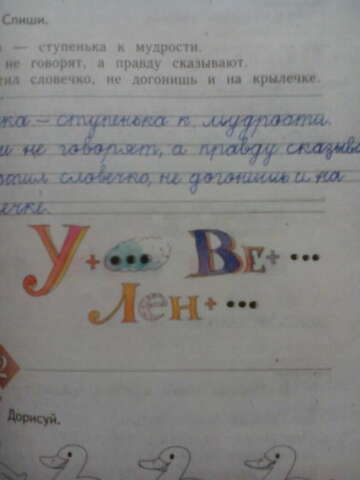 Спиши.
— ступенька к мудрости.
не говорят, а правду сказывают.
словечко, не догонишь и на крылечке.
ка – ступенька к мудрости.
и не говорят, а правду сказыва
словечко, не догонишь и на
ечке.
У + ••• Ве + •••
Лен + •••
2
Дорисуй.